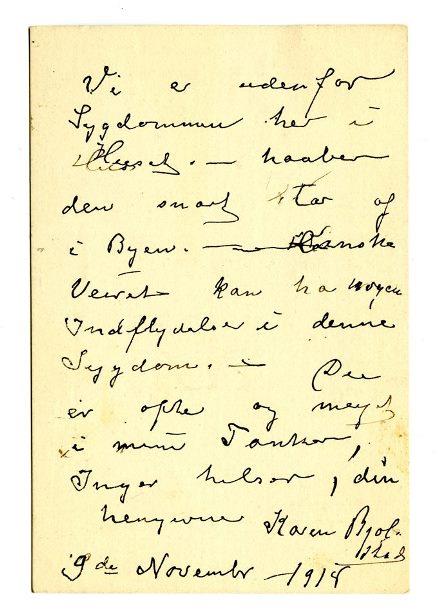 Vi er udenfor
Sygdommen her i
Huset. — haaber
den snart tar af
i Byen. — Kanske
Veiret kan ha nogen
Indflydelse i denne
Sygdom. — Du
er ofte og meget
i mine Tanker,
Inger hilser, din
hengivne Karen
9de November — 1918